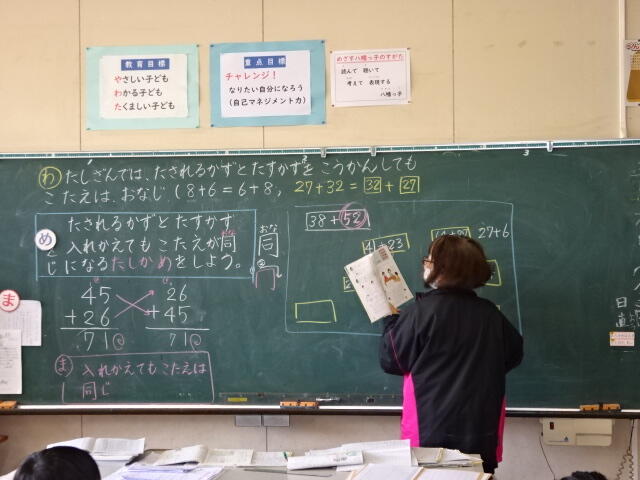 教育目標
やさしい子ども
わかる子ども
たくましい子ども
重点目標
チャレンジ！
なりたい自分になろう
（自己マネジメント力）
めざす八幡っ子のすがた
読んで 聴いて
考えて 表現する
八幡っ子
わ たしざんでは、たされるかずとたすかずを こうかんしても
こたえは、おなじ (8+6=6+8, 27+32=32+27
め
たされるかずとたすかず
入れかえてもこたえが同
じになるたしかめをしよう。
おな
同
45
+26
71
26
+45
71
ま 入れかえてもこたえは
同じ
38+52
27+6
ま
日
直